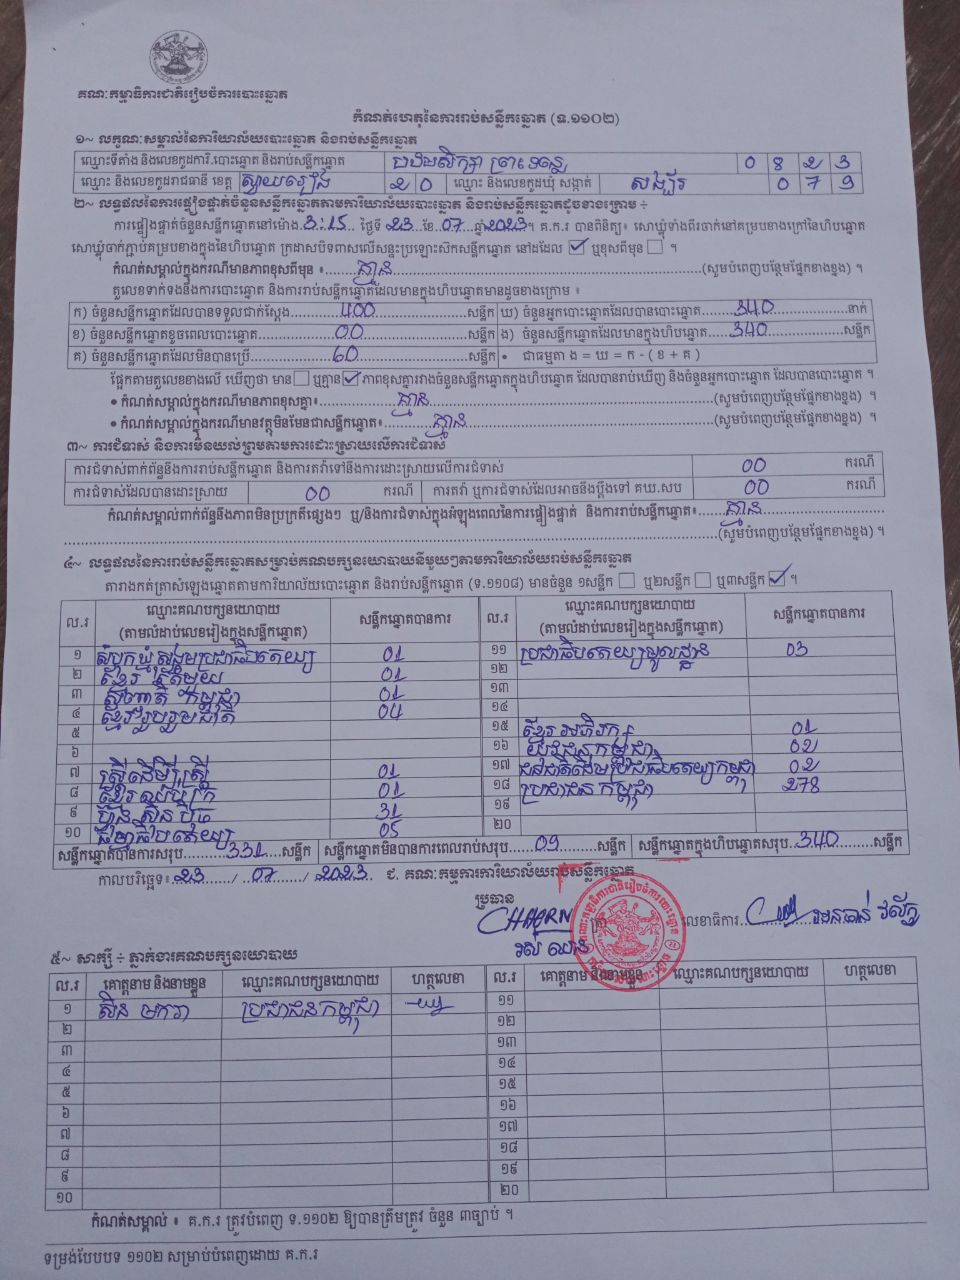 គណៈកម្មាធិការជាតិរៀបចំការបោះឆ្នោត
កំណត់ហេតុនៃការរាប់សន្លឹកឆ្នោត (ទ.១១០២)
១~ លក្ខណៈសម្គាល់នៃការិយាល័យបោះឆ្នោត និងរាប់សន្លឹកឆ្នោត
ឈ្មោះទីតាំង និងលេខកូដការិ.បោះឆ្នោត និងរាប់សន្លឹកឆ្នោត 0 8 2 3
ឈ្មោះ និងលេខកូដរាជធានី ខេត្ត ស្វាយរៀង 20 ឈ្មោះ និងលេខកូដឃុំ សង្កាត់ សង្ឃ័រ 0 7 9
២~ លទ្ធផលនៃការផ្ទៀងផ្ទាត់ចំនួនសន្លឹកឆ្នោតតាមការិយាល័យបោះឆ្នោត និងរាប់សន្លឹកឆ្នោតដូចខាងក្រោម ÷
ការផ្ទៀងផ្ទាត់ចំនួនសន្លឹកឆ្នោតនៅម៉ោង 3:15 ថ្ងៃទី 23 ខែ 07 ឆ្នាំ 2023 ។ គ.ក.រ បានពិនិត្យ៖ សោឃ្លុំទាំងពីរចាក់នៅគម្របខាងក្រៅនៃហិបឆ្នោត
សោឃ្លុំចាក់ភ្ជាប់គម្របខាងក្នុងនៃហិបឆ្នោត ក្រដាសបិទពាសលើសន្ទះប្រឡោះស៊កសន្លឹកឆ្នោត នៅដដែល ☑ ឬខុសពីមុន ☐ ។
កំណត់សម្គាល់ក្នុងករណីមានភាពខុសពីមុន ៖ គ្មាន (សូមបំពេញបន្ថែមផ្នែកខាងខ្នង) ។
តួលេខទាក់ទងនឹងការបោះឆ្នោត និងការរាប់សន្លឹកឆ្នោតដែលមានក្នុងហិបឆ្នោតមានដូចខាងក្រោម ៖
ក) ចំនួនសន្លឹកឆ្នោតដែលបានទទួលជាក់ស្តែង 400 សន្លឹក ឃ) ចំនួនអ្នកបោះឆ្នោតដែលបានបោះឆ្នោត 340 នាក់
ខ) ចំនួនសន្លឹកឆ្នោតខូចពេលបោះឆ្នោត 00 សន្លឹក ង) ចំនួនសន្លឹកឆ្នោតដែលមានក្នុងហិបឆ្នោត 340 សន្លឹក
គ) ចំនួនសន្លឹកឆ្នោតដែលមិនបានប្រើ 60 សន្លឹក • ជាធម្មតា ង = ឃ = ក - ( ខ + គ )
ផ្អែកតាមតួលេខខាងលើ ឃើញថា មាន ☐ ឬគ្មាន ☑ ភាពខុសគ្នារវាងចំនួនសន្លឹកឆ្នោតក្នុងហិបឆ្នោត ដែលបានរាប់ឃើញ និងចំនួនអ្នកបោះឆ្នោត ដែលបានបោះឆ្នោត ។
• កំណត់សម្គាល់ក្នុងករណីមានភាពខុសគ្នា៖ គ្មាន (សូមបំពេញបន្ថែមផ្នែកខាងខ្នង) ។
• កំណត់សម្គាល់ក្នុងករណីមានវត្ថុមិនមែនជាសន្លឹកឆ្នោត៖ គ្មាន (សូមបំពេញបន្ថែមផ្នែកខាងខ្នង) ។
៣~ ការជំទាស់ និងការមិនយល់ព្រមតាមការដោះស្រាយលើការជំទាស់
ការជំទាស់ពាក់ព័ន្ធនឹងការរាប់សន្លឹកឆ្នោត និងការតវ៉ាទៅនឹងការដោះស្រាយលើការជំទាស់ 00 ករណី
ការជំទាស់ដែលបានដោះស្រាយ 00 ករណី ការតវ៉ា ឬការជំទាស់ដែលអាចនឹងប្តឹងទៅ គឃ.សប 00 ករណី
កំណត់សម្គាល់ពាក់ព័ន្ធនឹងភាពមិនប្រក្រតីផ្សេងៗ ឬ/និងការជំទាស់ក្នុងអំឡុងពេលនៃការផ្ទៀងផ្ទាត់ និងការរាប់សន្លឹកឆ្នោត៖ គ្មាន
(សូមបំពេញបន្ថែមផ្នែកខាងខ្នង) ។
៤~ លទ្ធផលនៃការរាប់សន្លឹកឆ្នោតសម្រាប់គណបក្សនយោបាយនីមួយៗតាមការិយាល័យរាប់សន្លឹកឆ្នោត
តារាងកត់ត្រាសំឡេងឆ្នោតតាមការិយាល័យបោះឆ្នោត និងរាប់សន្លឹកឆ្នោត (ទ.១១០៨) មានចំនួន ១សន្លឹក ☐ ឬ២សន្លឹក ☐ ឬ៣សន្លឹក ☑ ។
ល.រ ឈ្មោះគណបក្សនយោបាយ (តាមលំដាប់លេខរៀងក្នុងសន្លឹកឆ្នោត) សន្លឹកឆ្នោតបានការ ល.រ ឈ្មោះគណបក្សនយោបាយ (តាមលំដាប់លេខរៀងក្នុងសន្លឹកឆ្នោត) សន្លឹកឆ្នោតបានការ
១ សំបុកឃ្មុំសង្គមប្រជាធិបតេយ្យ 01 ១១ ប្រជាធិបតេយ្យមូលដ្ឋាន 03
២ ខ្មែរតែមួយ 01 ១២
៣ សញ្ជាតិកម្ពុជា 01 ១៣
៤ ខ្មែររួបរួមជាតិ 04 ១៤
៥ ១៥ ខ្មែរអភិរក្ស 01
៦ ១៦ យុវជនកម្ពុជា 02
៧ ស្ត្រីដើម្បីស្ត្រី 01 ១៧ ជនជាតិដើមប្រជាធិបតេយ្យកម្ពុជា 02
៨ ខ្មែរឈប់ក្រ 01 ១៨ ប្រជាជនកម្ពុជា 278
៩ ហ៊្វុនស៊ិនប៉ិច 31 ១៩
១០ ធម្មាធិបតេយ្យ 05 ២០
សន្លឹកឆ្នោតបានការសរុប 331 សន្លឹក សន្លឹកឆ្នោតមិនបានការពេលរាប់សរុប 09 សន្លឹក សន្លឹកឆ្នោតក្នុងហិបឆ្នោតសរុប 340 សន្លឹក
កាលបរិច្ឆេទ៖ 23 / 07 / 2023 ជ. គណៈកម្មការការិយាល័យរាប់សន្លឹកឆ្នោត
ប្រធាន
CHHORN លេខាធិការ
៥~ សាក្សី ÷ ភ្នាក់ងារគណបក្សនយោបាយ
ល.រ គោត្តនាម និងនាមខ្លួន ឈ្មោះគណបក្សនយោបាយ ហត្ថលេខា ល.រ គោត្តនាម និងនាមខ្លួន ឈ្មោះគណបក្សនយោបាយ ហត្ថលេខា
១ ស៊ិន មករា ប្រជាជនកម្ពុជា ១១
២ ១២
៣ ១៣
៤ ១៤
៥ ១៥
៦ ១៦
៧ ១៧
៨ ១៨
៩ ១៩
១០ ២០
កំណត់សម្គាល់ ៖ គ.ក.រ ត្រូវបំពេញ ទ.១១០២ ឱ្យបានត្រឹមត្រូវ ចំនួន ៣ច្បាប់ ។
ទម្រង់បែបបទ ១១០២ សម្រាប់បំពេញដោយ គ.ក.រ